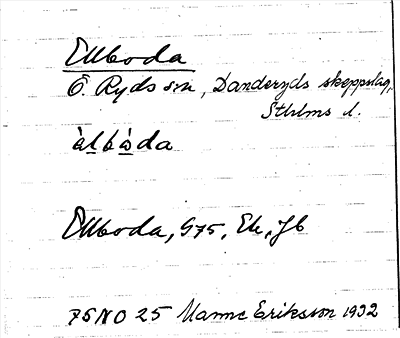 Ellboda
Ö. Ryds sn, Danderyds skeppslag,
Sthlms l.
àlbòda
Ellboda, G75, Ek, Jb
PSNO 25 Manne Eriksson 1932